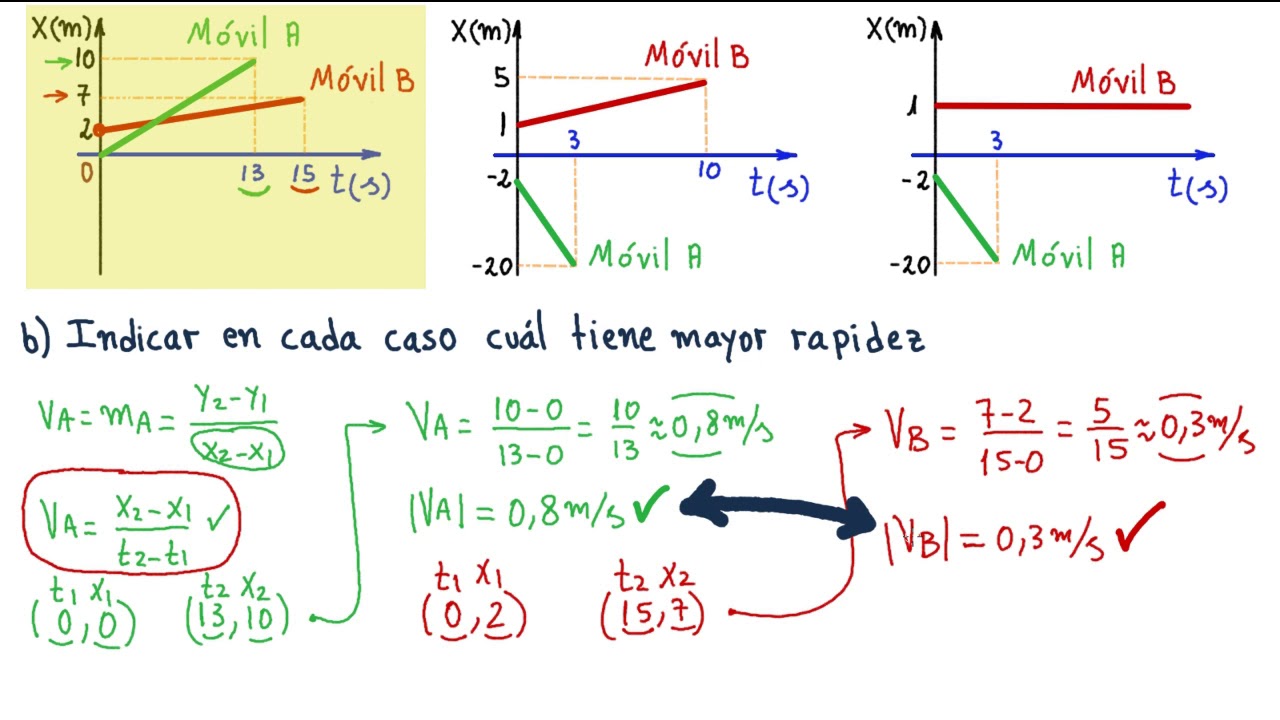 X(m)
Móvil A
→10
→7
Móvil B
2
0
13
15
t(s)
X(m)
Móvil B
5
1
3
-2
10
t(s)
-20
Móvil A
X(m)
Móvil B
1
3
-2
t(s)
-20
Móvil A
b) Indicar en cada caso cuál tiene mayor rapidez
VA = mA = Y2-Y1 / X2-X1
VA = X2-X1 / t2-t1 ✓
t1 X1
(0,0)
t2 X2
(13,10)
VA = 10-0 / 13-0 = 10/13 ≈ 0,8 m/s
|VA| = 0,8 m/s ✓
t1 X1
(0,2)
t2 X2
(15,7)
VB = 7-2 / 15-0 = 5/15 ≈ 0,3 m/s
|VB| = 0,3 m/s ✓